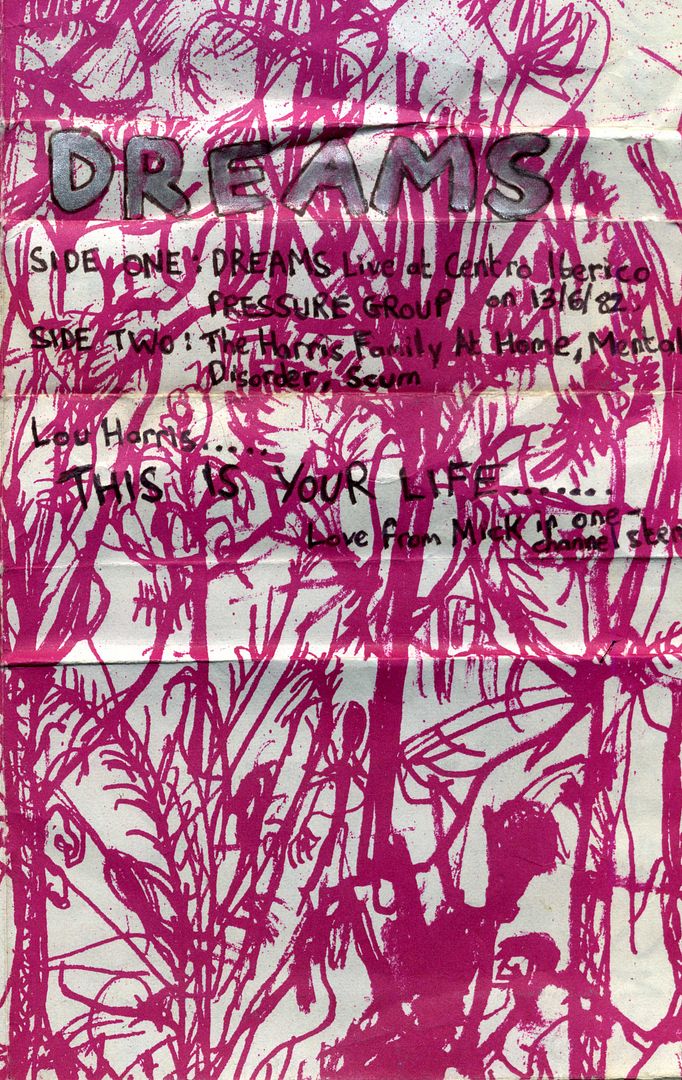 DREAMS
SIDE ONE: DREAMS Live at Centro Iberico
PRESSURE GROUP on 13/6/82.
SIDE TWO: The Harris Family At Home, Mental
Disorder, Scum
Lou Harris.....
THIS IS YOUR LIFE.......
Love from Mick in one-
channel